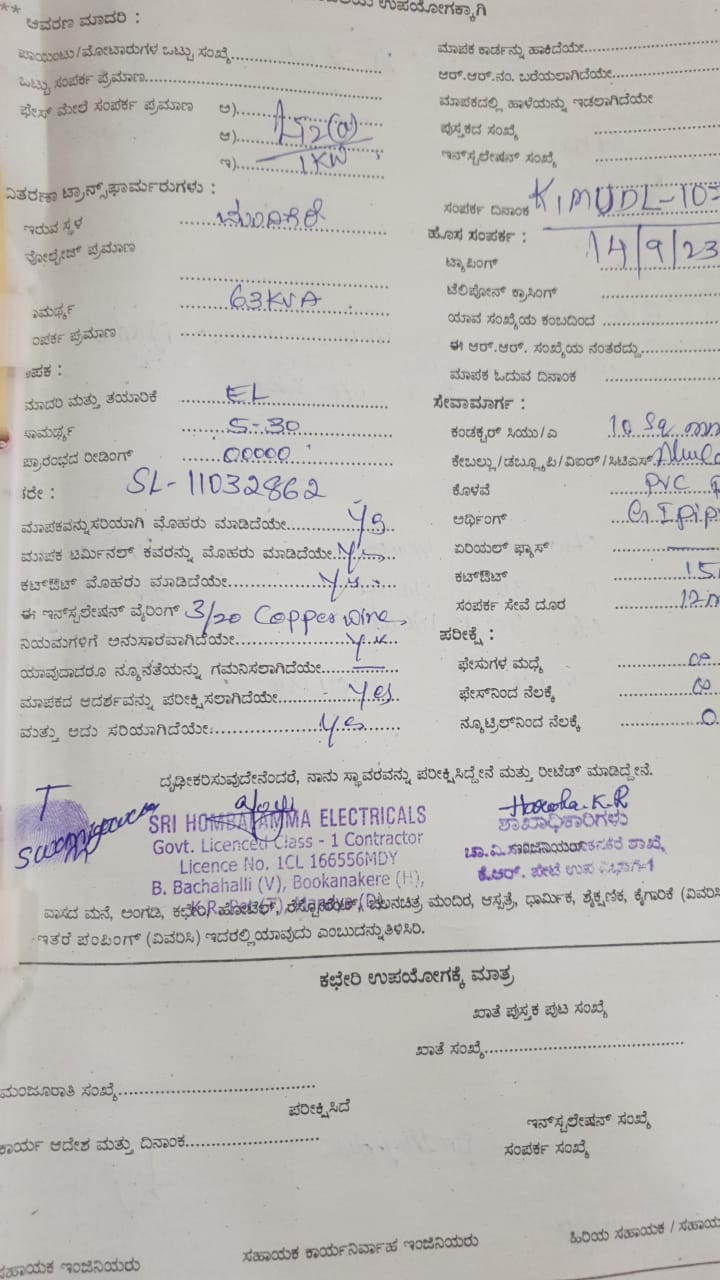 ** ಆವರಣ ಮಾದರಿ :
ಉಪಯೋಗಕ್ಕಾಗಿ
ಪಾಯಿಂಟು/ಮೋಟಾರುಗಳ ಒಟ್ಟು ಸಂಖ್ಯೆ
ಒಟ್ಟು ಸಂಪರ್ಕ ಪ್ರಮಾಣ
ಫೇಸ್ ಮೇಲೆ ಸಂಪರ್ಕ ಪ್ರಮಾಣ ಅ)
ಆ)
ಇ) 1KW
ವಿತರಣಾ ಟ್ರಾನ್ಸ್‌ಫಾರ್ಮರುಗಳು :
ಇರುವ ಸ್ಥಳ
ವೋಲ್ಟೇಜ್ ಪ್ರಮಾಣ
ಾಮರ್ಥ್ಯ 63KVA
ಂಪರ್ಕ ಪ್ರಮಾಣ
ಾಪಕ :
ಮಾದರಿ ಮತ್ತು ತಯಾರಿಕೆ EL
ಸಾಮರ್ಥ್ಯ 5-30
ಪ್ರಾರಂಭದ ರೀಡಿಂಗ್ 00000
ಕರೇ : SL-11032862
ಮಾಪಕವನ್ನು ಸರಿಯಾಗಿ ಮೊಹರು ಮಾಡಿದೆಯೇ ys
ಮಾಪಕ ಟರ್ಮಿನಲ್ ಕವರನ್ನು ಮೊಹರು ಮಾಡಿದೆಯೇ
ಕಟ್‌ಔಟ್ ಮೊಹರು ಮಾಡಿದೆಯೇ
ಈ ಇನ್‌ಸ್ಟಲೇಷನ್ ವೈರಿಂಗ್ 3/20 Copper wire,
ನಿಯಮಗಳಿಗೆ ಅನುಸಾರವಾಗಿದೆಯೇ
ಯಾವುದಾದರೂ ನ್ಯೂನತೆಯನ್ನು ಗಮನಿಸಲಾಗಿದೆಯೇ
ಮಾಪಕದ ಆದರ್ಶವನ್ನು ಪರೀಕ್ಷಿಸಲಾಗಿದೆಯೇ yes
ಮತ್ತು ಅದು ಸರಿಯಾಗಿದೆಯೇ ys
ಮಾಪಕ ಕಾರ್ಡನ್ನು ಹಾಕಿದೆಯೇ
ಆರ್.ಆರ್.ನಂ. ಬರೆಯಲಾಗಿದೆಯೇ
ಮಾಪಕದಲ್ಲಿ ಹಾಳೆಯನ್ನು ಇಡಲಾಗಿದೆಯೇ
ಪುಸ್ತಕದ ಸಂಖ್ಯೆ
ಇನ್‌ಸ್ಟಲೇಷನ್ ಸಂಖ್ಯೆ
ಸಂಪರ್ಕ ದಿನಾಂಕ K1MUDL-103
ಹೊಸ ಸಂಪರ್ಕ : 14/9/23
ಟ್ಯಾಪಿಂಗ್
ಟೆಲಿಪೋನ್ ಕ್ರಾಸಿಂಗ್
ಯಾವ ಸಂಖ್ಯೆಯ ಕಂಬದಿಂದ
ಈ ಆರ್.ಆರ್. ಸಂಖ್ಯೆಯ ನಂತರದ್ದು
ಮಾಪಕ ಓದುವ ದಿನಾಂಕ
ಸೇವಾಮಾರ್ಗ :
ಕಂಡಕ್ಟರ್ ಸಿಯು/ಎ 10 Sq mm
ಕೇಬಲ್ಲು/ಡಬ್ಲ್ಯೂಪಿ/ವಿಐರ್/ಸಿಟಿಎಸ್
ಕೊಳವೆ PVC P
ಅರ್ಥಿಂಗ್ G.I pip
ಏರಿಯಲ್ ಫ್ಯಾಸ್
ಕಟ್‌ಔಟ್ 15
ಸಂಪರ್ಕ ಸೇವೆ ದೂರ 12m
ಪರೀಕ್ಷೆ :
ಫೇಸುಗಳ ಮಧ್ಯೆ
ಫೇಸ್‌ನಿಂದ ನೆಲಕ್ಕೆ
ನ್ಯೂಟ್ರಿಲ್‌ನಿಂದ ನೆಲಕ್ಕೆ
ದೃಢೀಕರಿಸುವುದೇನೆಂದರೆ, ನಾನು ಸ್ಥಾವರವನ್ನು ಪರೀಕ್ಷಿಸಿದ್ದೇನೆ ಮತ್ತು ರೀಟೆಡ್ ಮಾಡಿದ್ದೇನೆ.
SRI HOMBALAMMA ELECTRICALS
Govt. Licenced Class - 1 Contractor
Licence No. 1CL 166556MDY
B. Bachahalli (V), Bookanakere (H),
Harsha.K.R
ಶಾಖಾಧಿಕಾರಿಗಳು
ಕೆ.ಆರ್. ಪೇಟೆ ಉಪ
ವಾಸದ ಮನೆ, ಅಂಗಡಿ, ಕಛೇರಿ, ಹೋಟೆಲ್, ಚಿತ್ರ ಮಂದಿರ, ಆಸ್ಪತ್ರೆ, ಧಾರ್ಮಿಕ, ಶೈಕ್ಷಣಿಕ, ಕೈಗಾರಿಕೆ (ವಿವರಿಸಿ
ಇತರೆ ಪಂಪಿಂಗ್ (ವಿವರಿಸಿ) ಇದರಲ್ಲಿ ಯಾವುದು ಎಂಬುದನ್ನು ತಿಳಿಸಿರಿ.
ಕಛೇರಿ ಉಪಯೋಗಕ್ಕೆ ಮಾತ್ರ
ಖಾತೆ ಪುಸ್ತಕ ಪುಟ ಸಂಖ್ಯೆ
ಖಾತೆ ಸಂಖ್ಯೆ
ಮಂಜೂರಾತಿ ಸಂಖ್ಯೆ
ಪರೀಕ್ಷಿಸಿದೆ
ಕಾರ್ಯ ಆದೇಶ ಮತ್ತು ದಿನಾಂಕ
ಇನ್‌ಸ್ಟಲೇಷನ್ ಸಂಖ್ಯೆ
ಸಂಪರ್ಕ ಸಂಖ್ಯೆ
ಸಹಾಯಕ ಇಂಜಿನಿಯರು
ಸಹಾಯಕ ಕಾರ್ಯನಿರ್ವಾಹ ಇಂಜಿನಿಯರು
ಹಿರಿಯ ಸಹಾಯಕ / ಸಹಾಯ